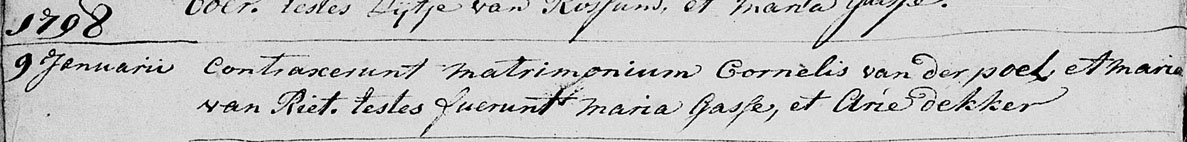 testes Dijtje van Rossum, et maria Gasse.
1798
9 Januarii contraxerunt matrimonium Cornelis van der poel, et maria
van Riet. testes fuerunt maria Gasse, et Arie dekker